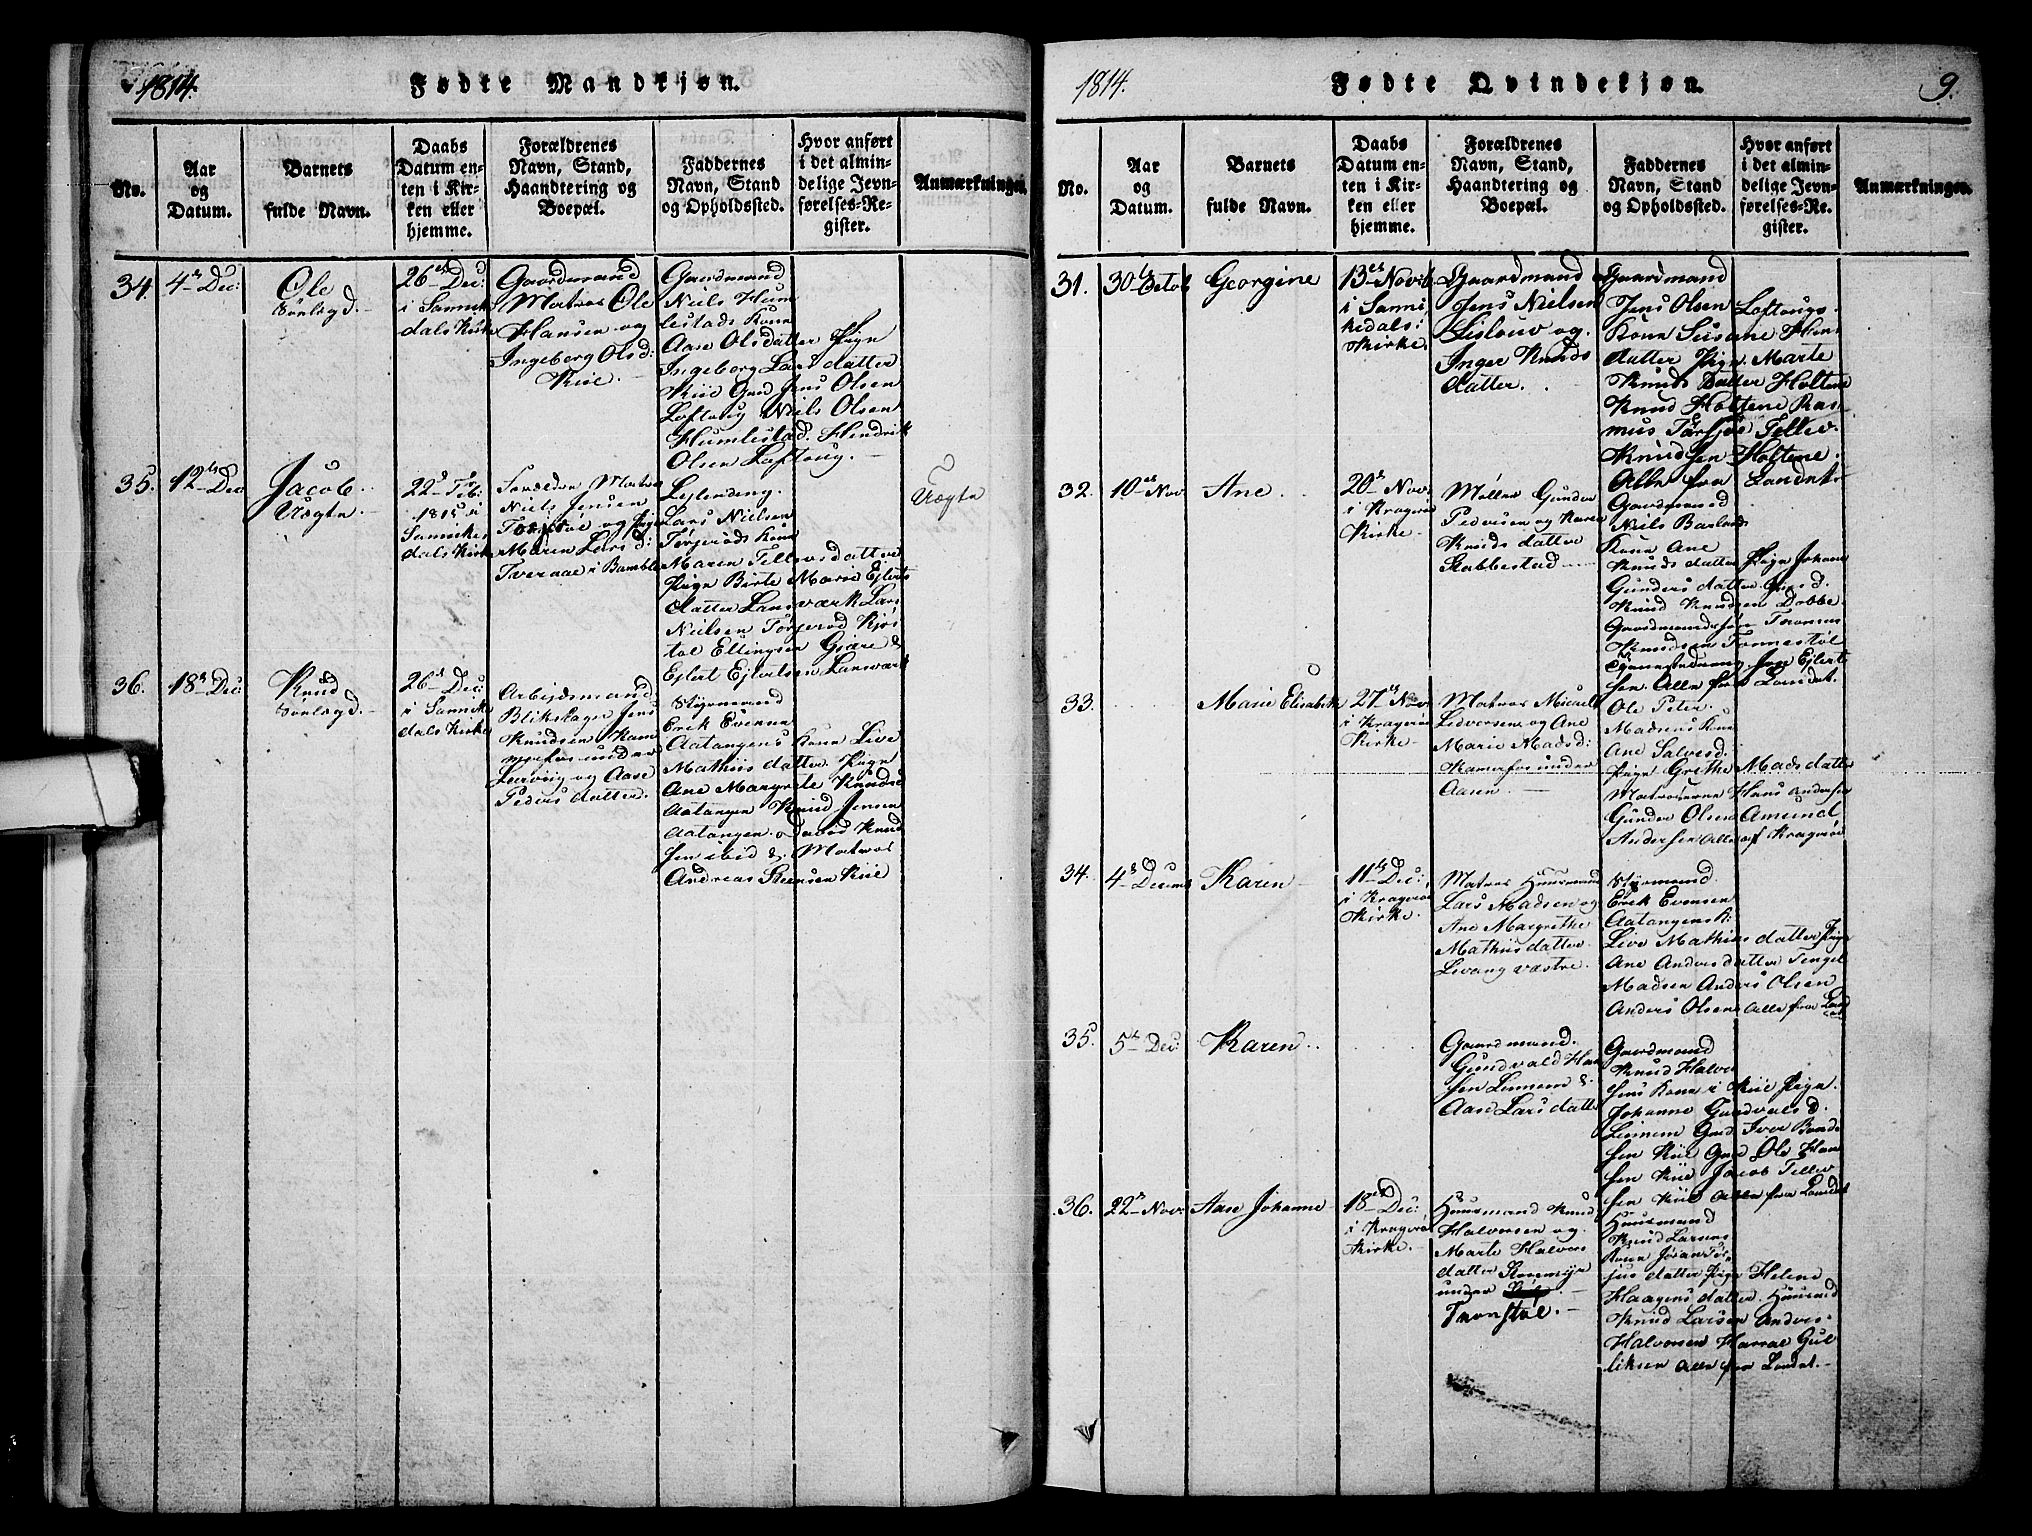 1814.
Fødte Mandkjøn.
No.
Aar
og
Datum.
Barnets
fulde Navn.
Daabs
Datum en-
ten i Kir-
ken eller
hjemme.
Forældrenes
Navn, Stand,
Haandtering og
Boepæl.
Faddernes
Navn, Stand
og Opholdssted.
Hvor anført
i det almin-
delige Jevn-
førelses-Re-
gister.
Anmærkninger.
34.
4de Dec:
Ole
26de Dec:
i Sannike
dals Kirke
Gaardmand
Matros Ole
Hansen og
Ingeborg Olsd:
Kiie.
Gaardmand
Niels Hum
lestads Kone
Aase Olsdatter Pige
Ingeborg Lars datter
Kiie Gmd Jens Olsen
Loftoug Niels Olsen
Humlestad. Hendrik
Olsen Loftoug.
35.
12te Dec
Jacob
Uægte.
22de Feb:
1815 i
Sannike
dals Kirke
Matros
Niels Jensen
og Pige
Maren Larsd:
Tveraae i Bamble
Lars Nielsen
Tørjerøds Kone
Maren Tellevsdatter
Pige Birte Marie Ejlerts
datter Lansværk Lars
Nielsen Tørjerød
Ellingsen
Ejlert Ejlertsen Lansværk
Uægte
36.
18de Dec
Knud
26de Dec:
i Sannike
dals Kirke
Arbejdsmand
Blikslager Jens
Knudsen Kam
merfos under
og Aase
Peders datter.
Styrmand
Erik Evensen
Aatangens Kone Live
Mathiis datter Pige
Ane Margrete Knudsd
Aatangen Knud Jensen
Aatangen David Knud
sen ibid & Matros
Andreas Steensen Kiie
1814.
Fødte Qvindekjøn.
9.
No.
Aar
og
Datum.
Barnets
fulde Navn.
Daabs
Datum en-
ten i Kir-
ken eller
hjemme.
Forældrenes
Navn, Stand,
Haandtering og
Boepæl.
Faddernes
Navn, Stand
og Opholdssted.
Hvor anført
i det almin-
delige Jevn-
førelses-Re-
gister.
Anmærkninger.
31.
30te Octob
Georgine
13de Novb
i Sanni
kedals
Kirke.
Gaardmand
Jens Nielsen
Lislouw og
Inger Knuds
datter.
Gaardmand
Jens Olsen Loftougs
Kone Susane Hans
datter Pige Marte
Knuds Datter Holtene
Knud Holtene Ras-
mus Tellev
Knudsen Holtene.
Alle fra Landet
32.
10de Nov.
Ane
20de Nov.
i Kragerøe
Kirke
Møller Gunder
Pedersen og Karen
Knuds datter
Stabbestad
Gaardmand
Niels Barlands
Kone Ane
Knuds datter Pige Johane
Gunders datter
Knud Knudsen Dobbe
Gaardmandssøn Thomas
Knudsen Tonnestøl
Jens Ejlert
sen Alle fra Landet.
33.
Marie Elisabeth
27de Nov
i Kragerøe
Kirke
Matros Micael
Ledversen og Ane
Marie Madsd:
Kamerfos under
Aasen.
Ole Peter
Madsens Kone
Ane Salvesd.
Pige Grethe Mads datter
Matroserne Hans Andersen
Gunder Olsen Amund
Andersen Alle af Kragerøe
34.
4de Decemb
Karen
11te Dec:
i Kragerøe
Kirke.
Matros Huusmand
Lars Madsen og
Ane Margrethe
Mathiis datter
Levang vestre.
Styrmand
Erik Evensen
Aatangens K:
Live Mathiis datter Pige
Ane Anders datter Tengel
Madsen Anders Olsen
Anders Olsen Alle fra Land
et
35.
5te Dec:
Karen
Gaardmand
Gundvald Han
sen Linnem &
Aase Lars datter
Gaardmand
Knud Halvor
sens Kone i Kiie Pige
Johanne Gundvalsd.
Linnem Gmd Iver Bendt
sen Kiie Gmd Ole Han
sen Kiie Jacob Tellev
sen Kiie Alle fra Landet
36.
22de Nov.
Aase Johanne
18de Dec:
i Kragerøe
Kirke.
Huusmand Knud
Halvorsen og
Marte Halvors
datter Rosemyr
under
Tronstøl.
Huusmand
Knud Larsens
Kone Jøran Tør
jus datter Pige Helene
Haagens datter. Huusmd
Knud Larsen Anders
Halvorsen Harrae Gul
liksen Alle fra Landet.